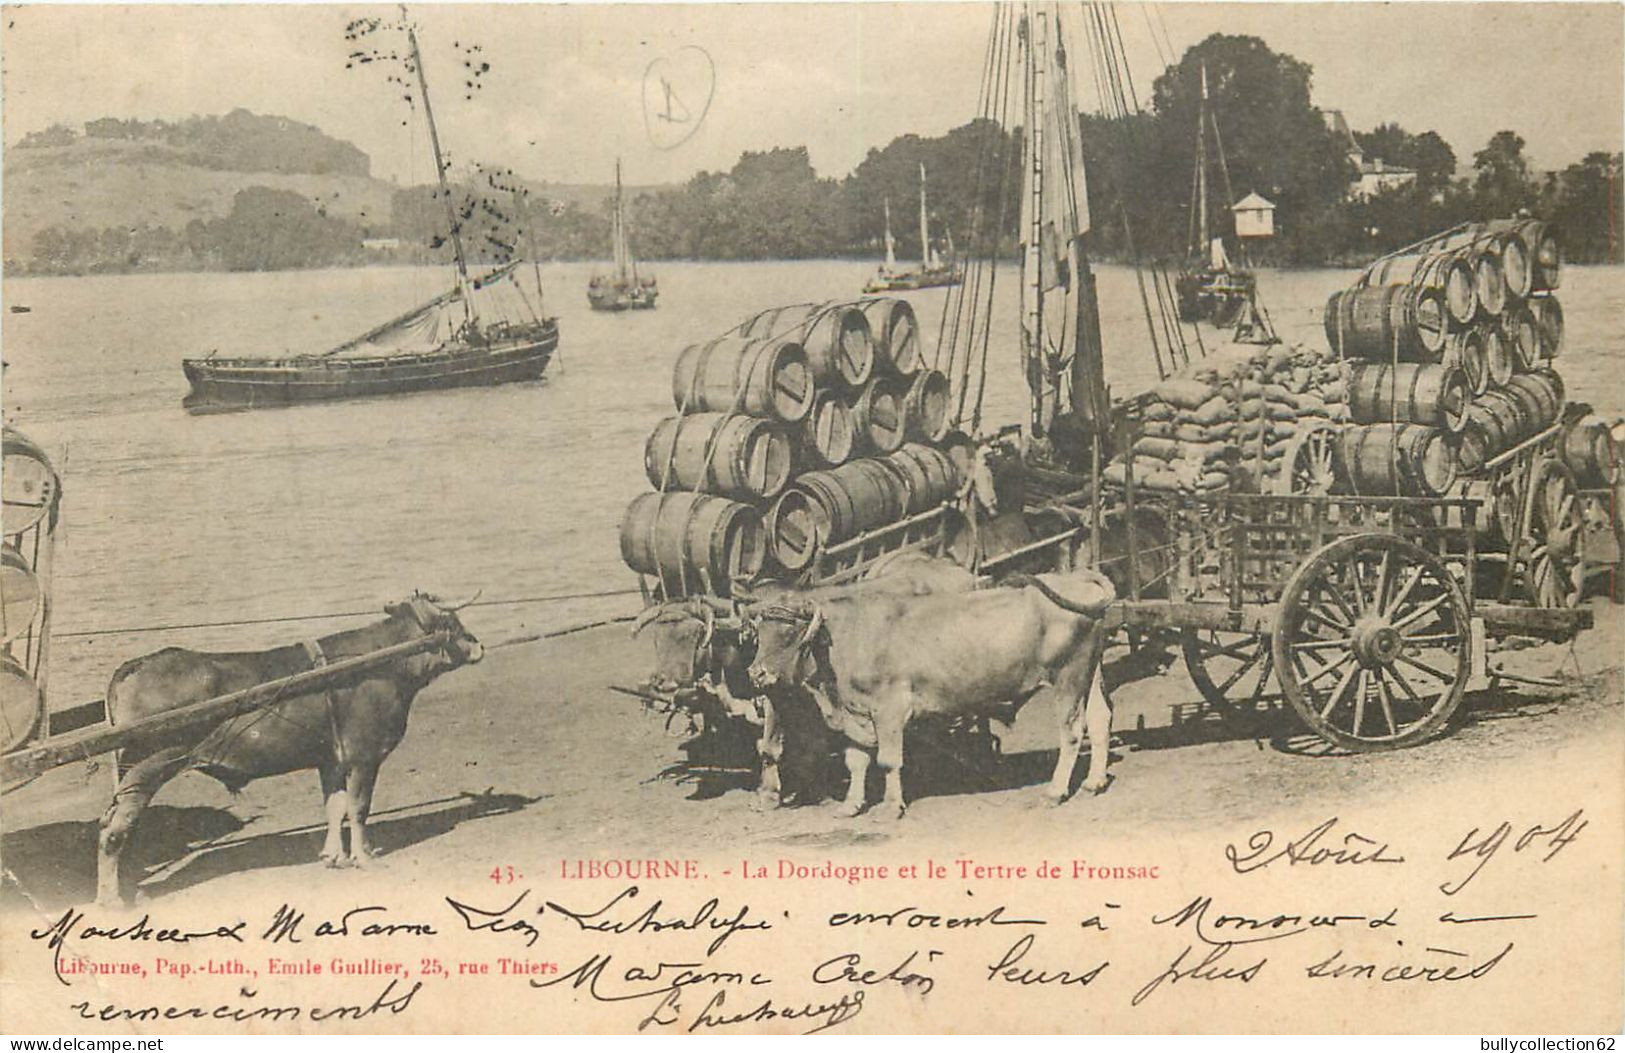 2 Août 1904
43. - LIBOURNE. - La Dordogne et le Tertre de Fronsac
Monsieur & Madame Léon envoient à Monsieur &
Libourne, Pap.-Lith., Emile Guillier, 25, rue Thiers
Madame leurs plus sincères
remerciments
delcampe.net
bullycollection62